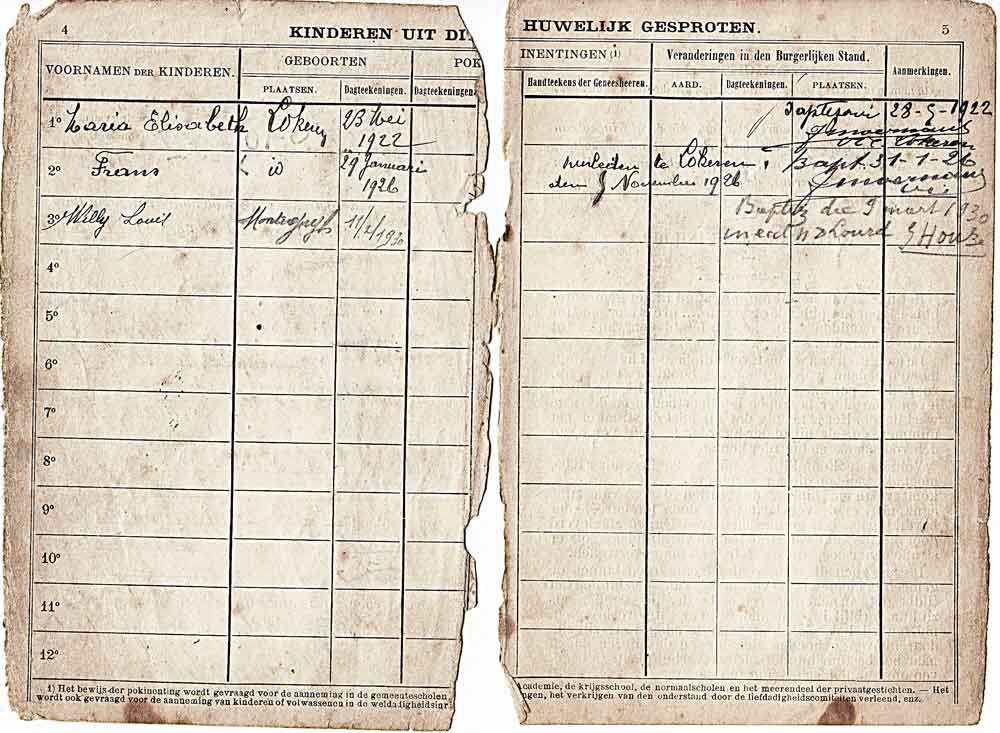 4
KINDEREN UIT DI
VOORNAMEN DER KINDEREN.
GEBOORTEN
POK
PLAATSEN.
Dagteekeningen.
Dagteekeningen.
1º Maria Elisabeth
23 Mei
1922
2º Frans
id
29 Januari
1926
3º Willy Louis
11/2/1930
4º
5º
6º
7º
8º
9º
10º
11º
12º
1) Het bewijs der pokinenting wordt gevraagd voor de aanneming in de gemeentescholen
wordt ook gevraagd voor de aanneming van kinderen of volwassenen in de weldadigheidsinr
HUWELIJK GESPROTEN.
5
INENTINGEN (1)
Veranderingen in den Burgerlijken Stand.
Aanmerkingen.
Handteekens der Geneesheeren.
AARD.
Dagteekeningen.
PLAATSEN.
Baptisavi 28-5-1922
vic Lokeren
overleden te Lokeren
den 5 November 1926
Bapt. 31-1-26
Baptisé die 9 mart 1930
Academie, de krijgsschool, de normaalscholen en het meerendeel der privaatgestichten. — Het
ngen, het verkrijgen van den onderstand door de liefdadigheidscomiteiten verleend, enz.